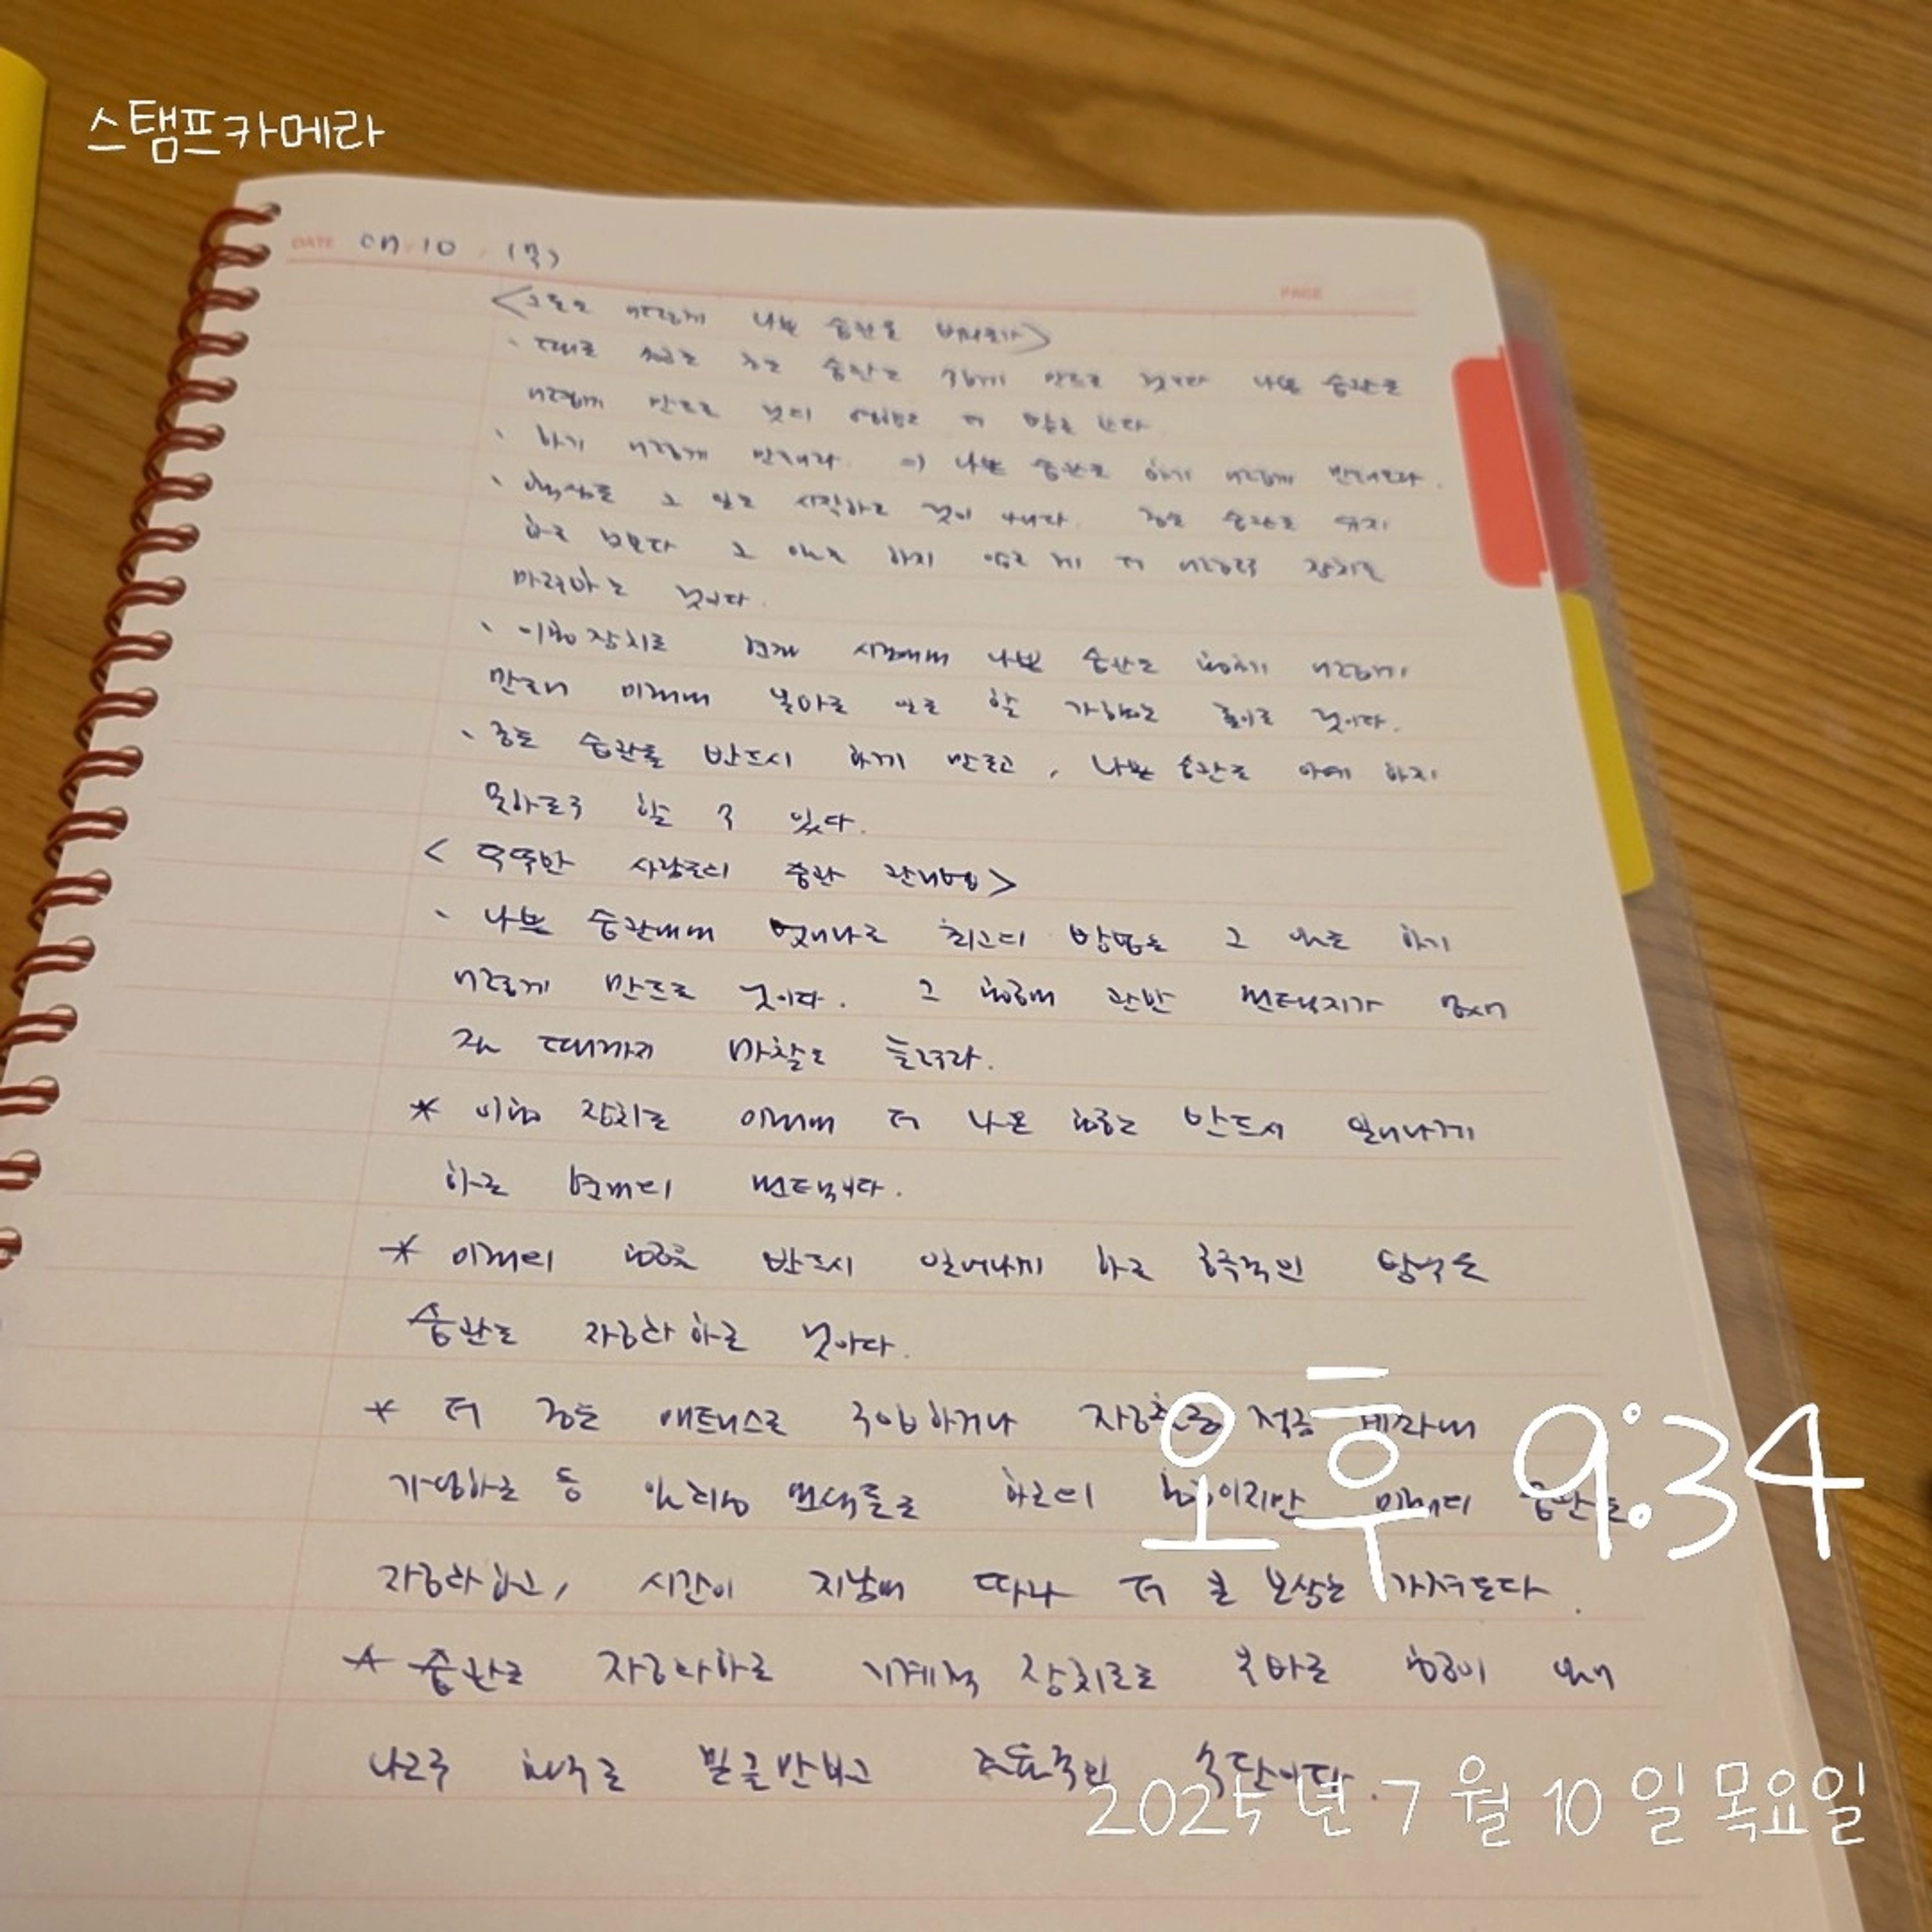 스탬프카메라
DATE 07.10 (목)
PAGE
<그들은 어떻게 나쁜 습관을 버리는가>
· 때로 성공은 좋은 습관을 쉽게 만드는 것보다 나쁜 습관을
어렵게 만드는 것의 더 한다.
· 하기 어렵게 만들어라. => 나쁜 습관은 하기 어렵게 만들어라.
· 핵심은 그 일을 시작하는 것이 아니다. 좋은 습관을 유지
하는 보다 그 일을 하지 않는 게 더 어려운 장치를
마련하는 것이다.
· 이행장치는 현재 시점에서 나쁜 습관을 행하기 어렵게
만들어 미래에 원하는 일을 할 가능성을 높이는 것이다.
· 좋은 습관을 반드시 하게 만들고, 나쁜 습관은 아예 하지
못하도록 할 수 있다.
<똑똑한 사람들의 습관 관리법>
· 나쁜 습관에서 벗어나는 최고의 방법은 그 일을 하기
어렵게 만드는 것이다. 그 행동에 관한 선택지가 없어
질 때까지 마찰을 늘려라.
* 이행 장치는 미래에 더 나은 행동을 반드시 일어나게
하는 현재의 선택이다.
* 미래의 행동을 반드시 일어나게 하는 궁극적인 방식은
습관을 자동화하는 것이다.
* 더 좋은 매트리스를 구입하거나 자동 적금
가입하는 등 일회성 선택들은 하루의 행동이지만 미래의 습관을
자동화하고, 시간이 지남에 따라 더 큰 보상을 가져온다.
* 습관을 자동화하는 기계적 장치들은 올바른 행동이 일어
나도록 하는 믿을만하고 효율적인 수단이다.
오후 9:34
2025년 7월 10일 목요일